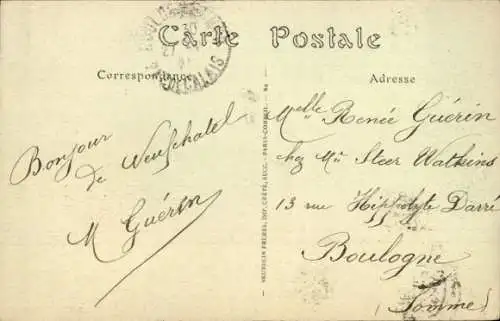 Carte Postale
Correspondance
Adresse
PAS-DE-CALAIS
Bonjour
de Neufchatel
M Guérin
Melle Renée Guérin
chez Mrs Steer Watkins
13 rue Hippolyte Darré
Boulogne
(Somme)
NEURDEIN FRÈRES, IMP. CRÉTÉ, SUCC. - PARIS-CORBEIL